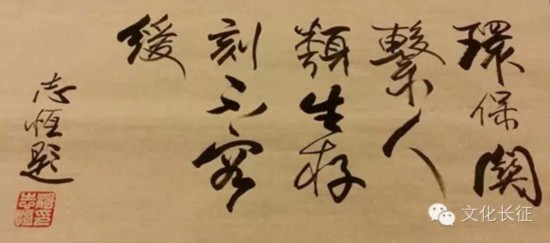 環保關
繫人
類生存
刻不容
緩
志恒題
文化长征